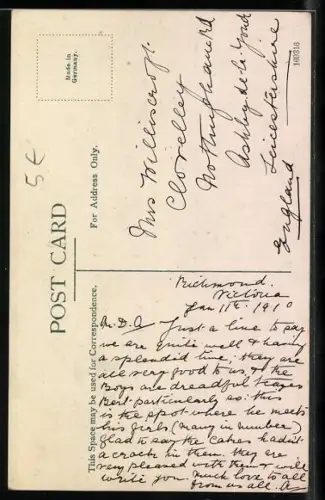 POST CARD
This Space may be used for Correspondence.
For Address Only.
Made in
Germany.
5€
Richmond.
Victoria
Jan 11th 1910
M. D. A Just a line to say
we are quite well & having
a splendid time, they are
all very good to us, & the
Boys are dreadful teases
Bert particularly so: this
is the spot where he meets
his girls (many in number)
Glad to say the Cakes hadn't
a crack in them. they are
very pleased with them & will
write you. much love to all
from us all. A
Mrs
Clovelley
Nottingham Rd
Ashby-de-la-Zouch
Leicestershire
England
160316